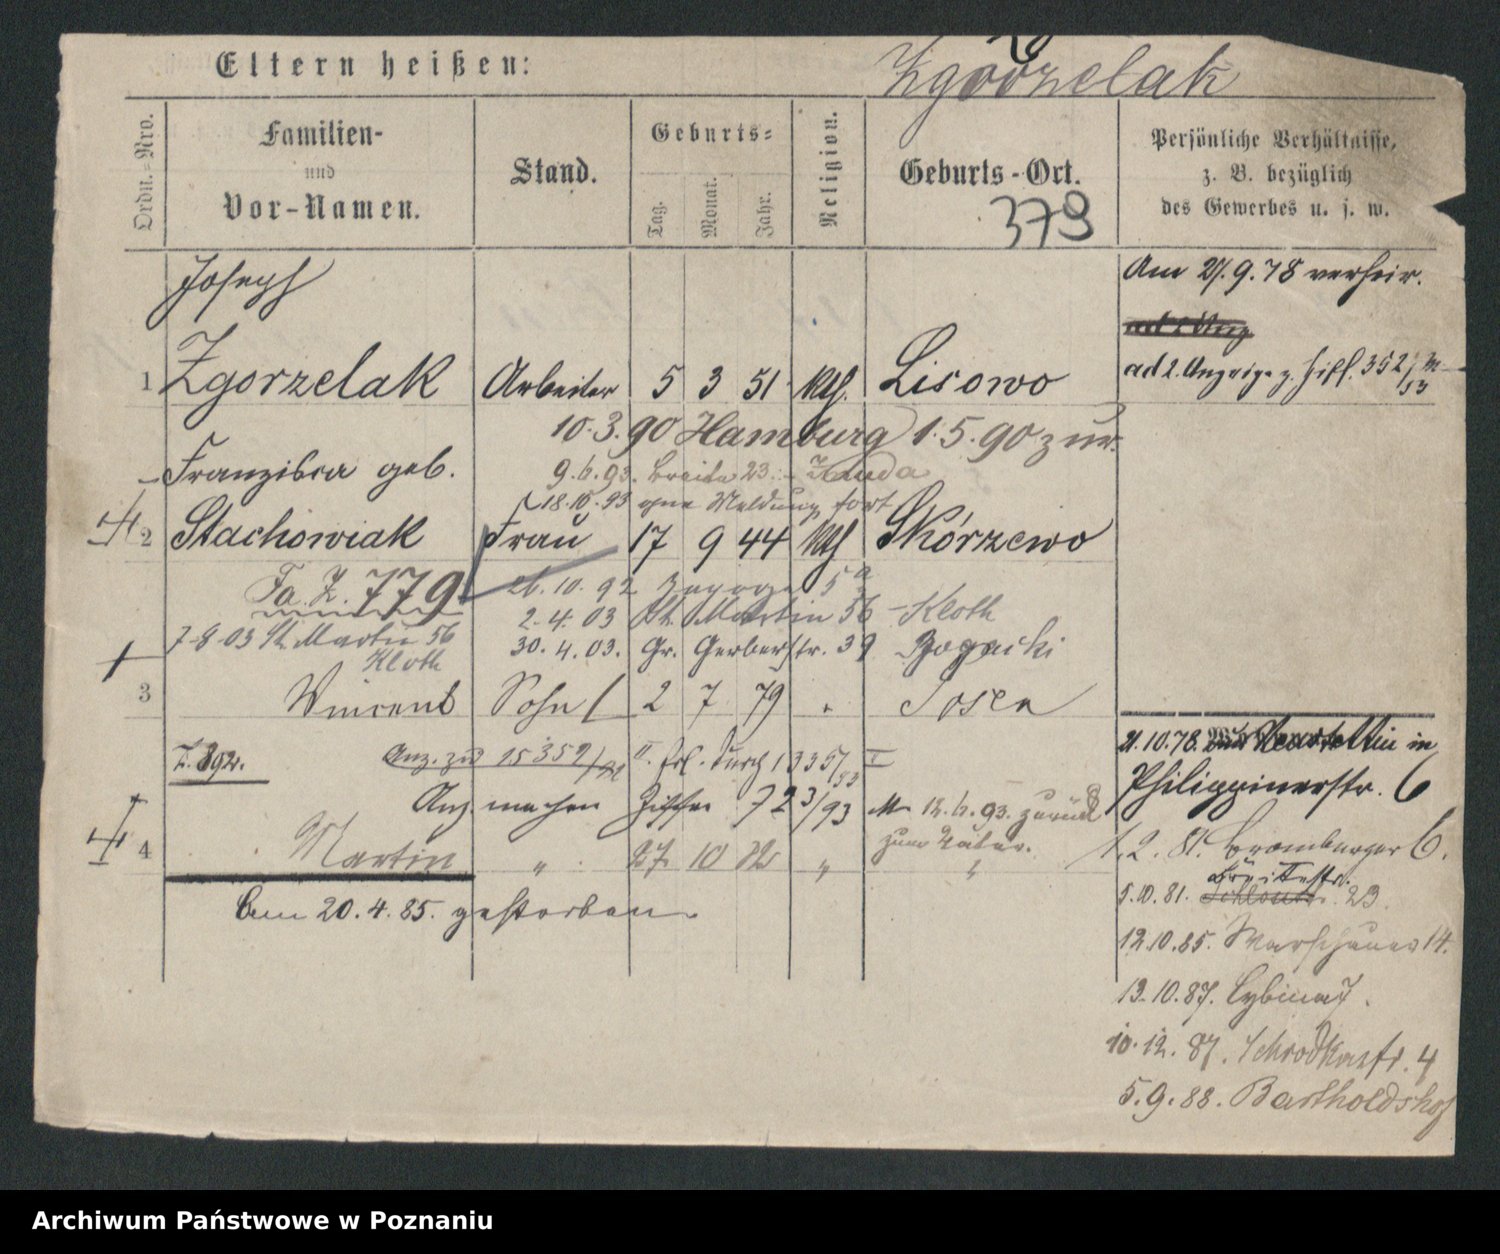 Eltern heißen:
Zgorzelak
Ordn.-Nro.
Familien-
und
Vor-Namen.
Stand.
Geburts-
Tag.
Monat.
Jahr.
Religion.
Geburts-Ort.
379
Persönliche Verhältnisse,
z. B. bezüglich
des Gewerbes u. s. w.
Joseph
Am 21.9.78 verheir.
1 Zgorzelak Arbeiter 5 3 51 kth. Lisowo
ad 2. Anzeige z. 352
10.3.90 Hamburg 1.5.90 zur.
Franziska geb.
9.6.93. Breite 23.
18.10.93 ohne Meldung fort
2 Stachowiak Frau 17 9 44 kth Skórzewo
Fa. Z. 779
26.10.92 5a
2.4.03 St. Martin 56 - Kloth
7-8-03 St. Martin 56
Kloth
30.4.03. Gr. Gerberstr. 39 Bogacki
3 Vincent Sohn 2 7 79 " Posen
21.10.78. in
Philippinerstr. 6
Z. 892.
Anz. zu 15352 II. Erl. durch 1335/93 I
Anz. machen 723/93 12.6.93. zurück
zum Vater.
4 Martin " 27 10 82 " "
1.2.81. Bromberger 6.
Breitestr.
5.10.81. 23.
Am 20.4.85. gestorben
12.10.85. Warschauer 14.
13.10.87. Cybina 7.
10.12.87. Schrodkastr. 4
5.9.88. Bartholdshof
Archiwum Państwowe w Poznaniu